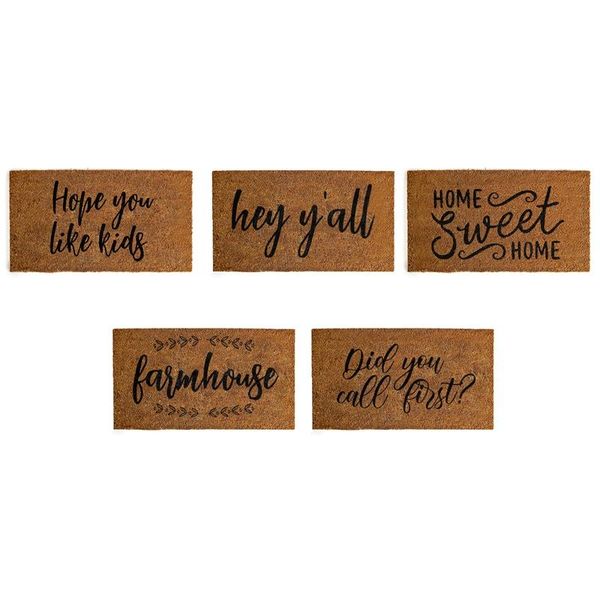 Hope you
like kids
hey y'all
HOME
Sweet
HOME
farmhouse
Did you
call first?